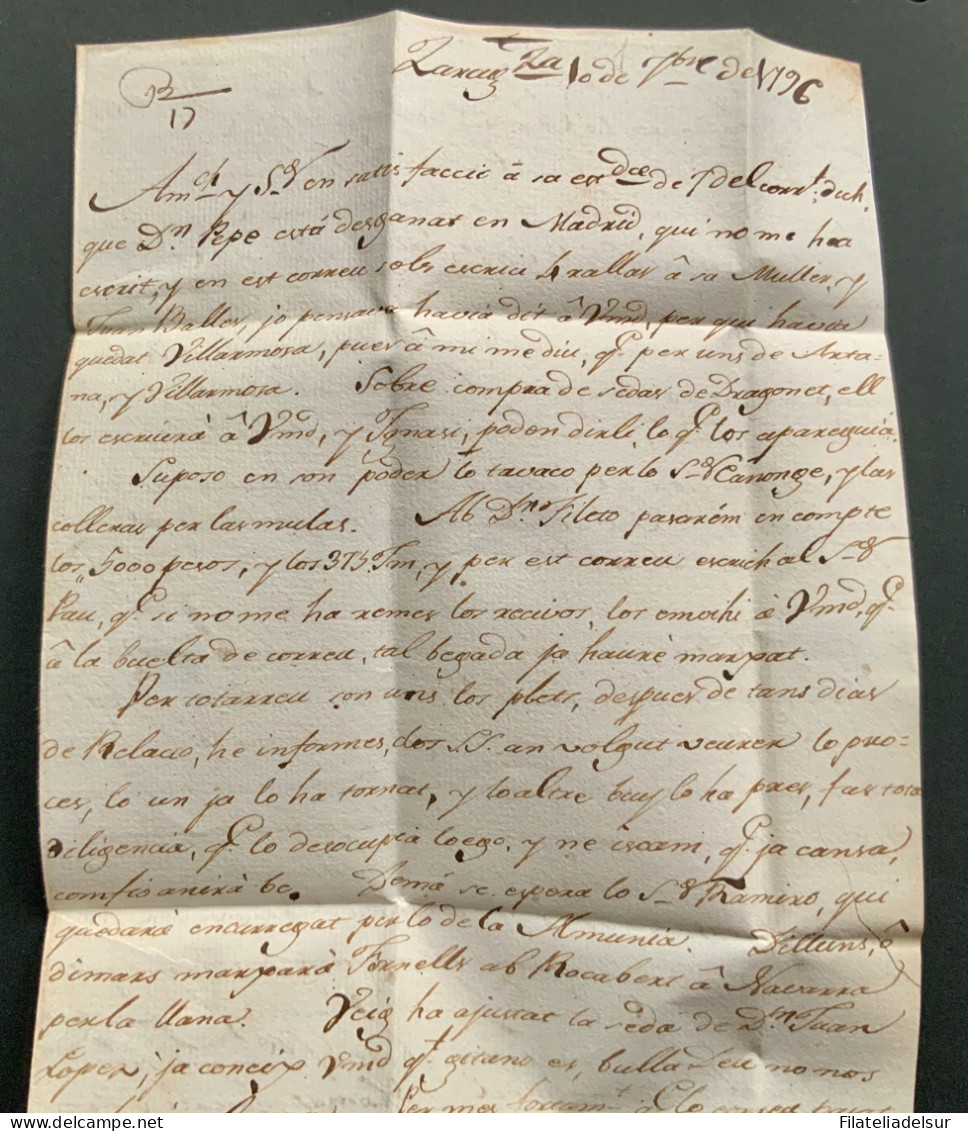 Zarag.za 10 de 7bre de 1796
R
17
Am.ch y S.or en satisfacció â sa est.da de 7 del corr.t, dich,
que D.n Pepe está desganat en Madrid, qui no me ha
escrit, y en est correu sols escriu 4 rallas â sa Muller, y
Juan Balles, jo pensava havia dit â Vmd, per qui havia
quedat Villarmosa, pues â mi me diu, q.e per uns de Arta-
na, y Villarmosa. Sobre compra de sedas de Dragonet, ell
los escriurà â Vmd, y Ignasi, poden dirli, lo q.e los aparequia.
Suposo en son poder lo tavaco per lo S.or Canonge, y las
colleras per las mulas. Ab D.n Fileto pasarém en compte
los 5000 pesos, y los 375 y per est correu escrich al S.or
Pau, q.e si no me ha remes los recivos, los emochi â Vmd, q.e
â la buelta de correu, tal begada ja hauré marxat.
Per totarreu son uns los plets, despues de tans dias
de Relació, he informes, dos SS. an volgut veurer lo pro-
ces, lo un ja lo ha tornat, y lo altre buy lo ha pres, fas tota
diligencia, q.e lo desocupia luego, y ne iscam, q.e ja cansa,
confio anirà be. Demá se espera lo S.or Ramiro, qui
quedarà encarregat per lo de la Amunia. Dilluns, ô
dimars marxarà Fornells ab Rocabert â Navarra
per la llana. Veig ha ajustat la seda de D.n Juan
Lopez, ja coneix Vmd q.e gitano es, bulla Deu no nos
Per mes
Filateliadelsur